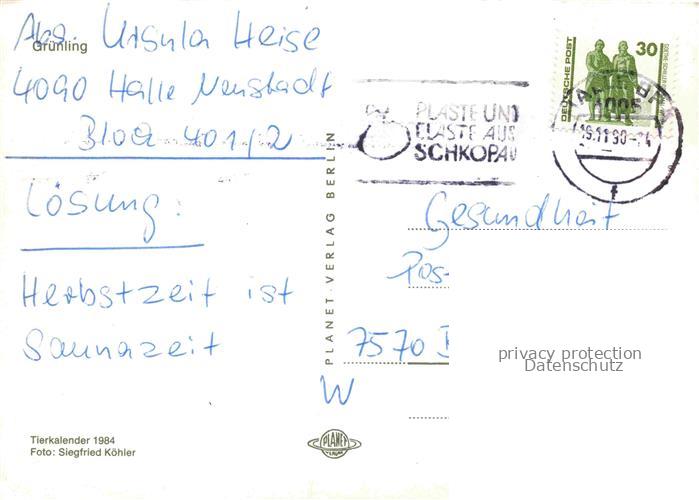 Abs. Ursula Heise
Grünling
4090 Halle Neustadt
Block 401/2
Lösung:
Herbstzeit ist
Saunazeit
Tierkalender 1984
Foto: Siegfried Köhler
PLANET-VERLAG BERLIN
PLANET
PLASTE UND
ELASTE AUS
SCHKOPAU
DEUTSCHE POST
30
15.11.90
f
Gesundheit
Pos-
7570
W
privacy protection
Datenschutz